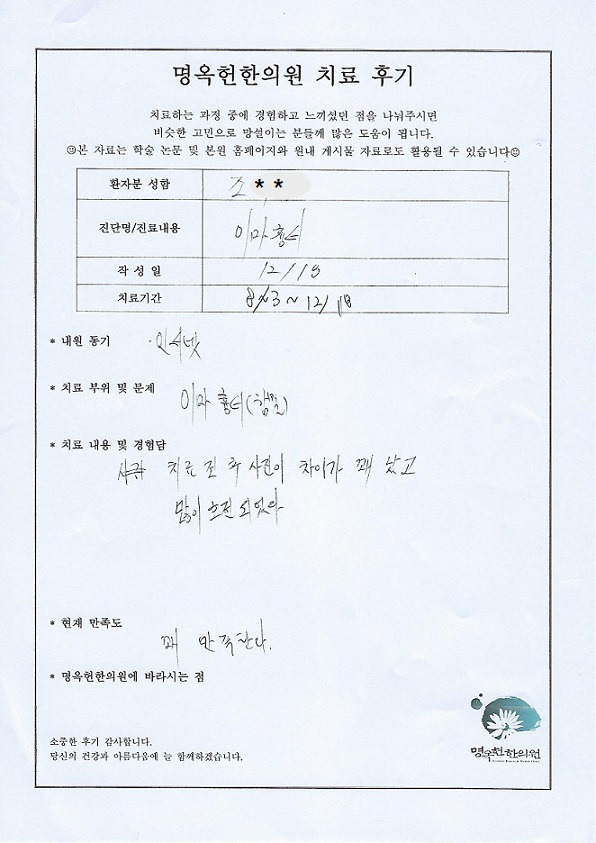 명옥헌한의원 치료 후기
치료하는 과정 중에 경험하고 느끼셨던 점을 나눠주시면
비슷한 고민으로 망설이는 분들께 많은 도움이 됩니다.
☺본 자료는 학술 논문 및 본원 홈페이지와 원내 게시물 자료로도 활용될 수 있습니다☺
환자분 성함 조 * *
진단명/진료내용 이마 흉터
작 성 일 12/18
치료기간 8/3 ~ 12/18
* 내원 동기 인터넷
* 치료 부위 및 문제 이마 흉터(함몰)
* 치료 내용 및 경험담
치료 전 후 사진이 차이가 꽤 났고
많이 호전 되었다
* 현재 만족도
꽤 만족한다.
* 명옥헌한의원에 바라시는 점
소중한 후기 감사합니다.
당신의 건강과 아름다움에 늘 함께하겠습니다.
명옥헌한의원